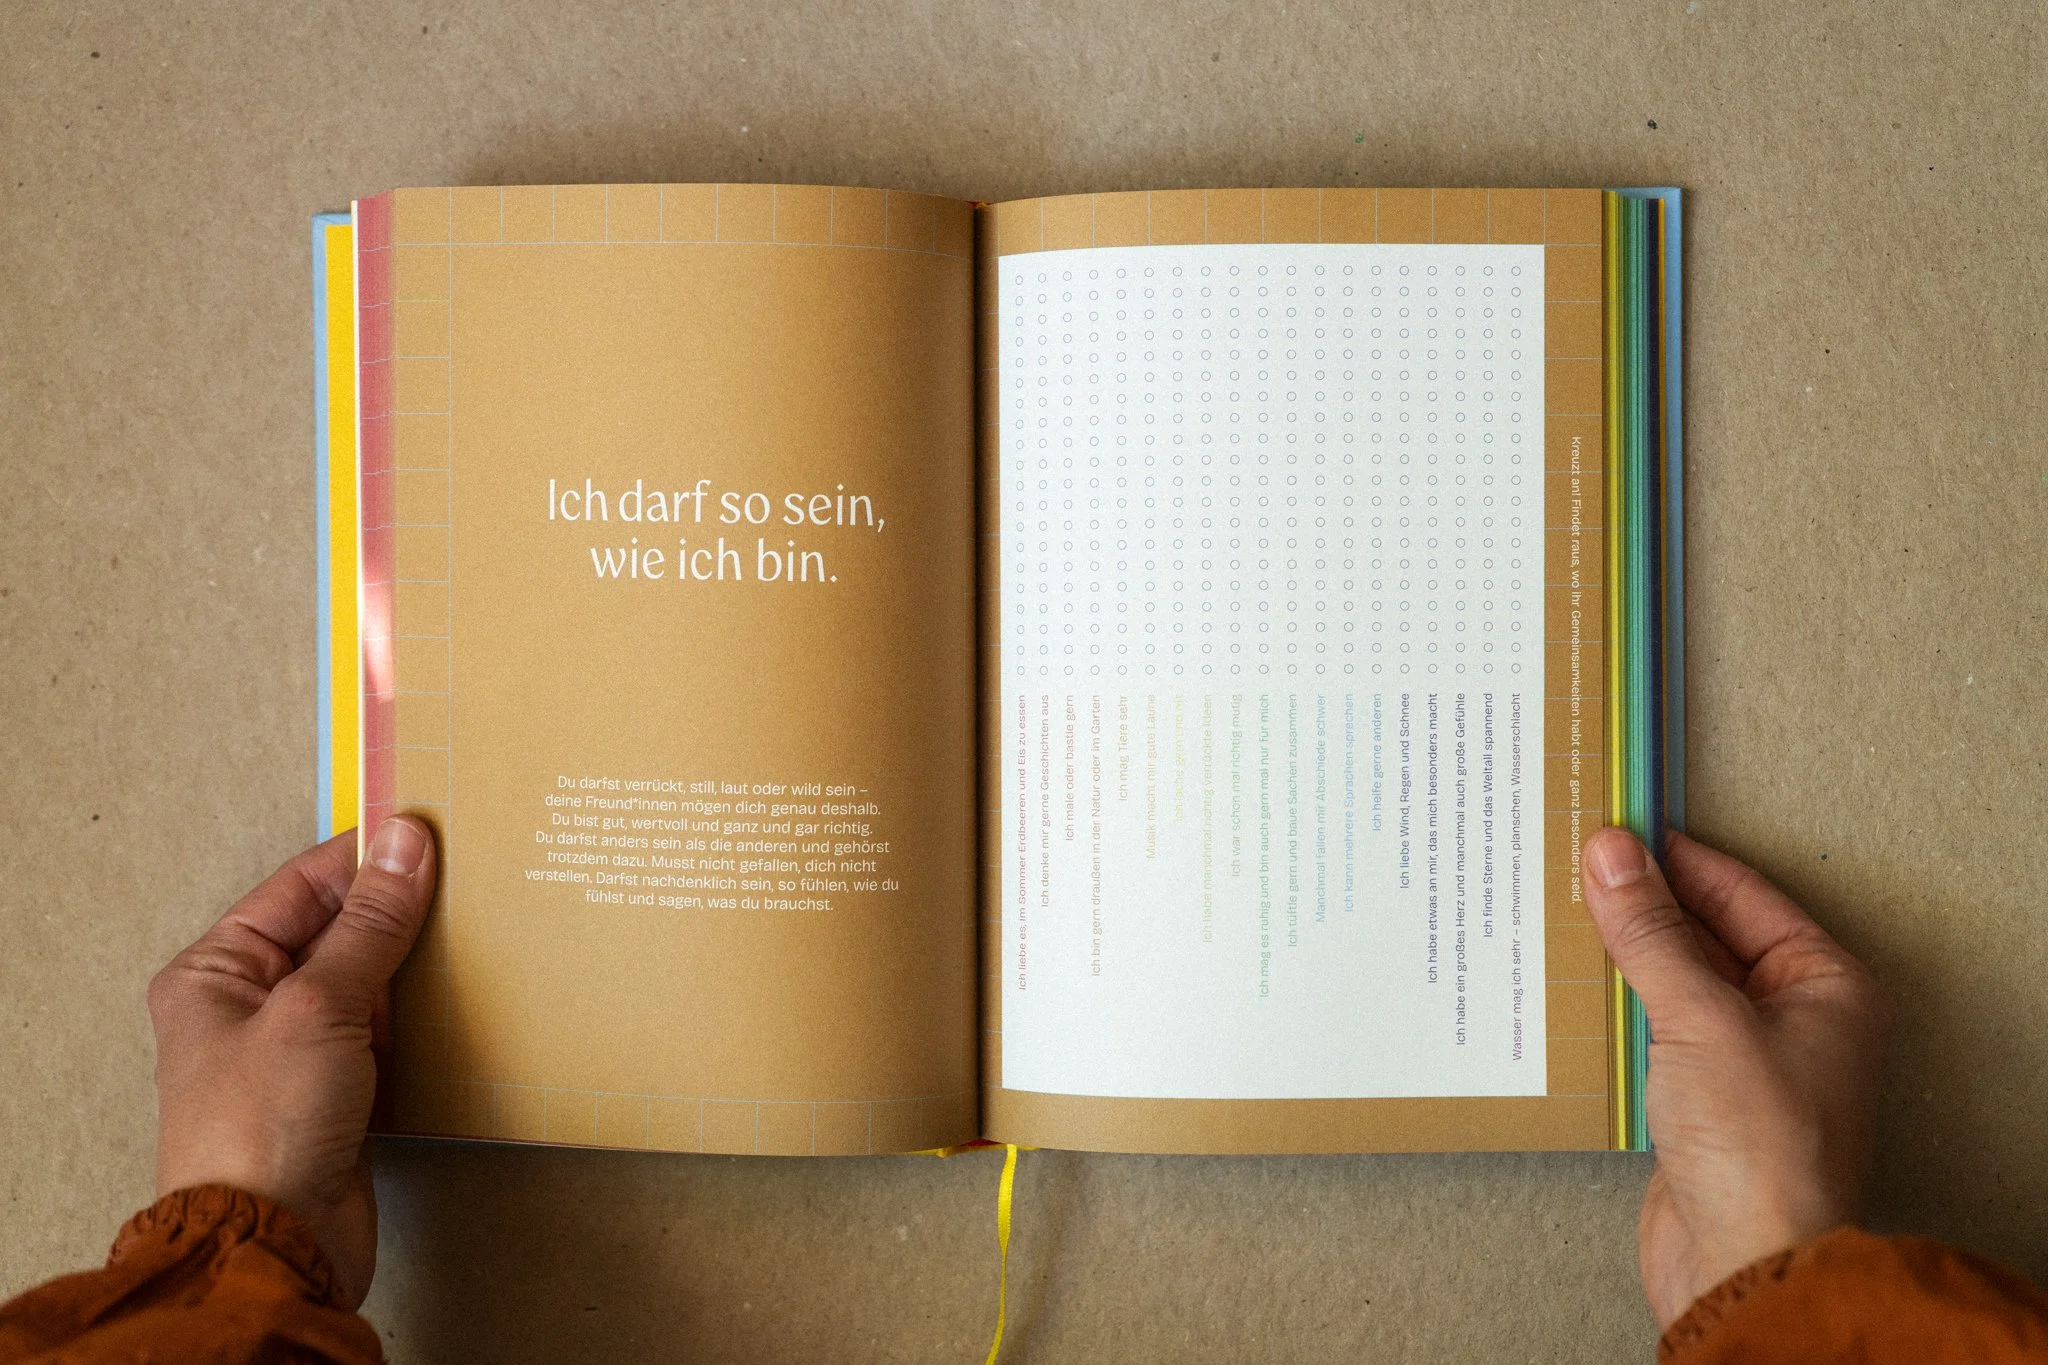 Ich darf so sein,
wie ich bin.
Du darfst verrückt, still, laut oder wild sein –
deine Freund*innen mögen dich genau deshalb.
Du bist gut, wertvoll und ganz und gar richtig.
Du darfst anders sein als die anderen und gehörst
trotzdem dazu. Musst nicht gefallen, dich nicht
verstellen. Darfst nachdenklich sein, so fühlen, wie du
fühlst und sagen, was du brauchst.
Ich liebe es, im Sommer Erdbeeren und Eis zu essen
Ich denke mir gerne Geschichten aus
Ich male oder bastle gern
Ich bin gern draußen in der Natur oder im Garten
Ich mag Tiere sehr
Musik macht mir gute Laune
Ich lache gern und viel
Ich habe manchmal richtig verrückte Ideen
Ich war schon mal richtig mutig
Ich mag es ruhig und bin auch gern mal nur für mich
Ich tüftle gern und baue Sachen zusammen
Manchmal fallen mir Abschiede schwer
Ich kann mehrere Sprachen sprechen
Ich helfe gerne anderen
Ich liebe Wind, Regen und Schnee
Ich habe etwas an mir, das mich besonders macht
Ich habe ein großes Herz und manchmal auch große Gefühle
Ich finde Sterne und das Weltall spannend
Wasser mag ich sehr – schwimmen, planschen, Wasserschlacht
Kreuzt an! Findet raus, wo ihr Gemeinsamkeiten habt oder ganz besonders seid.